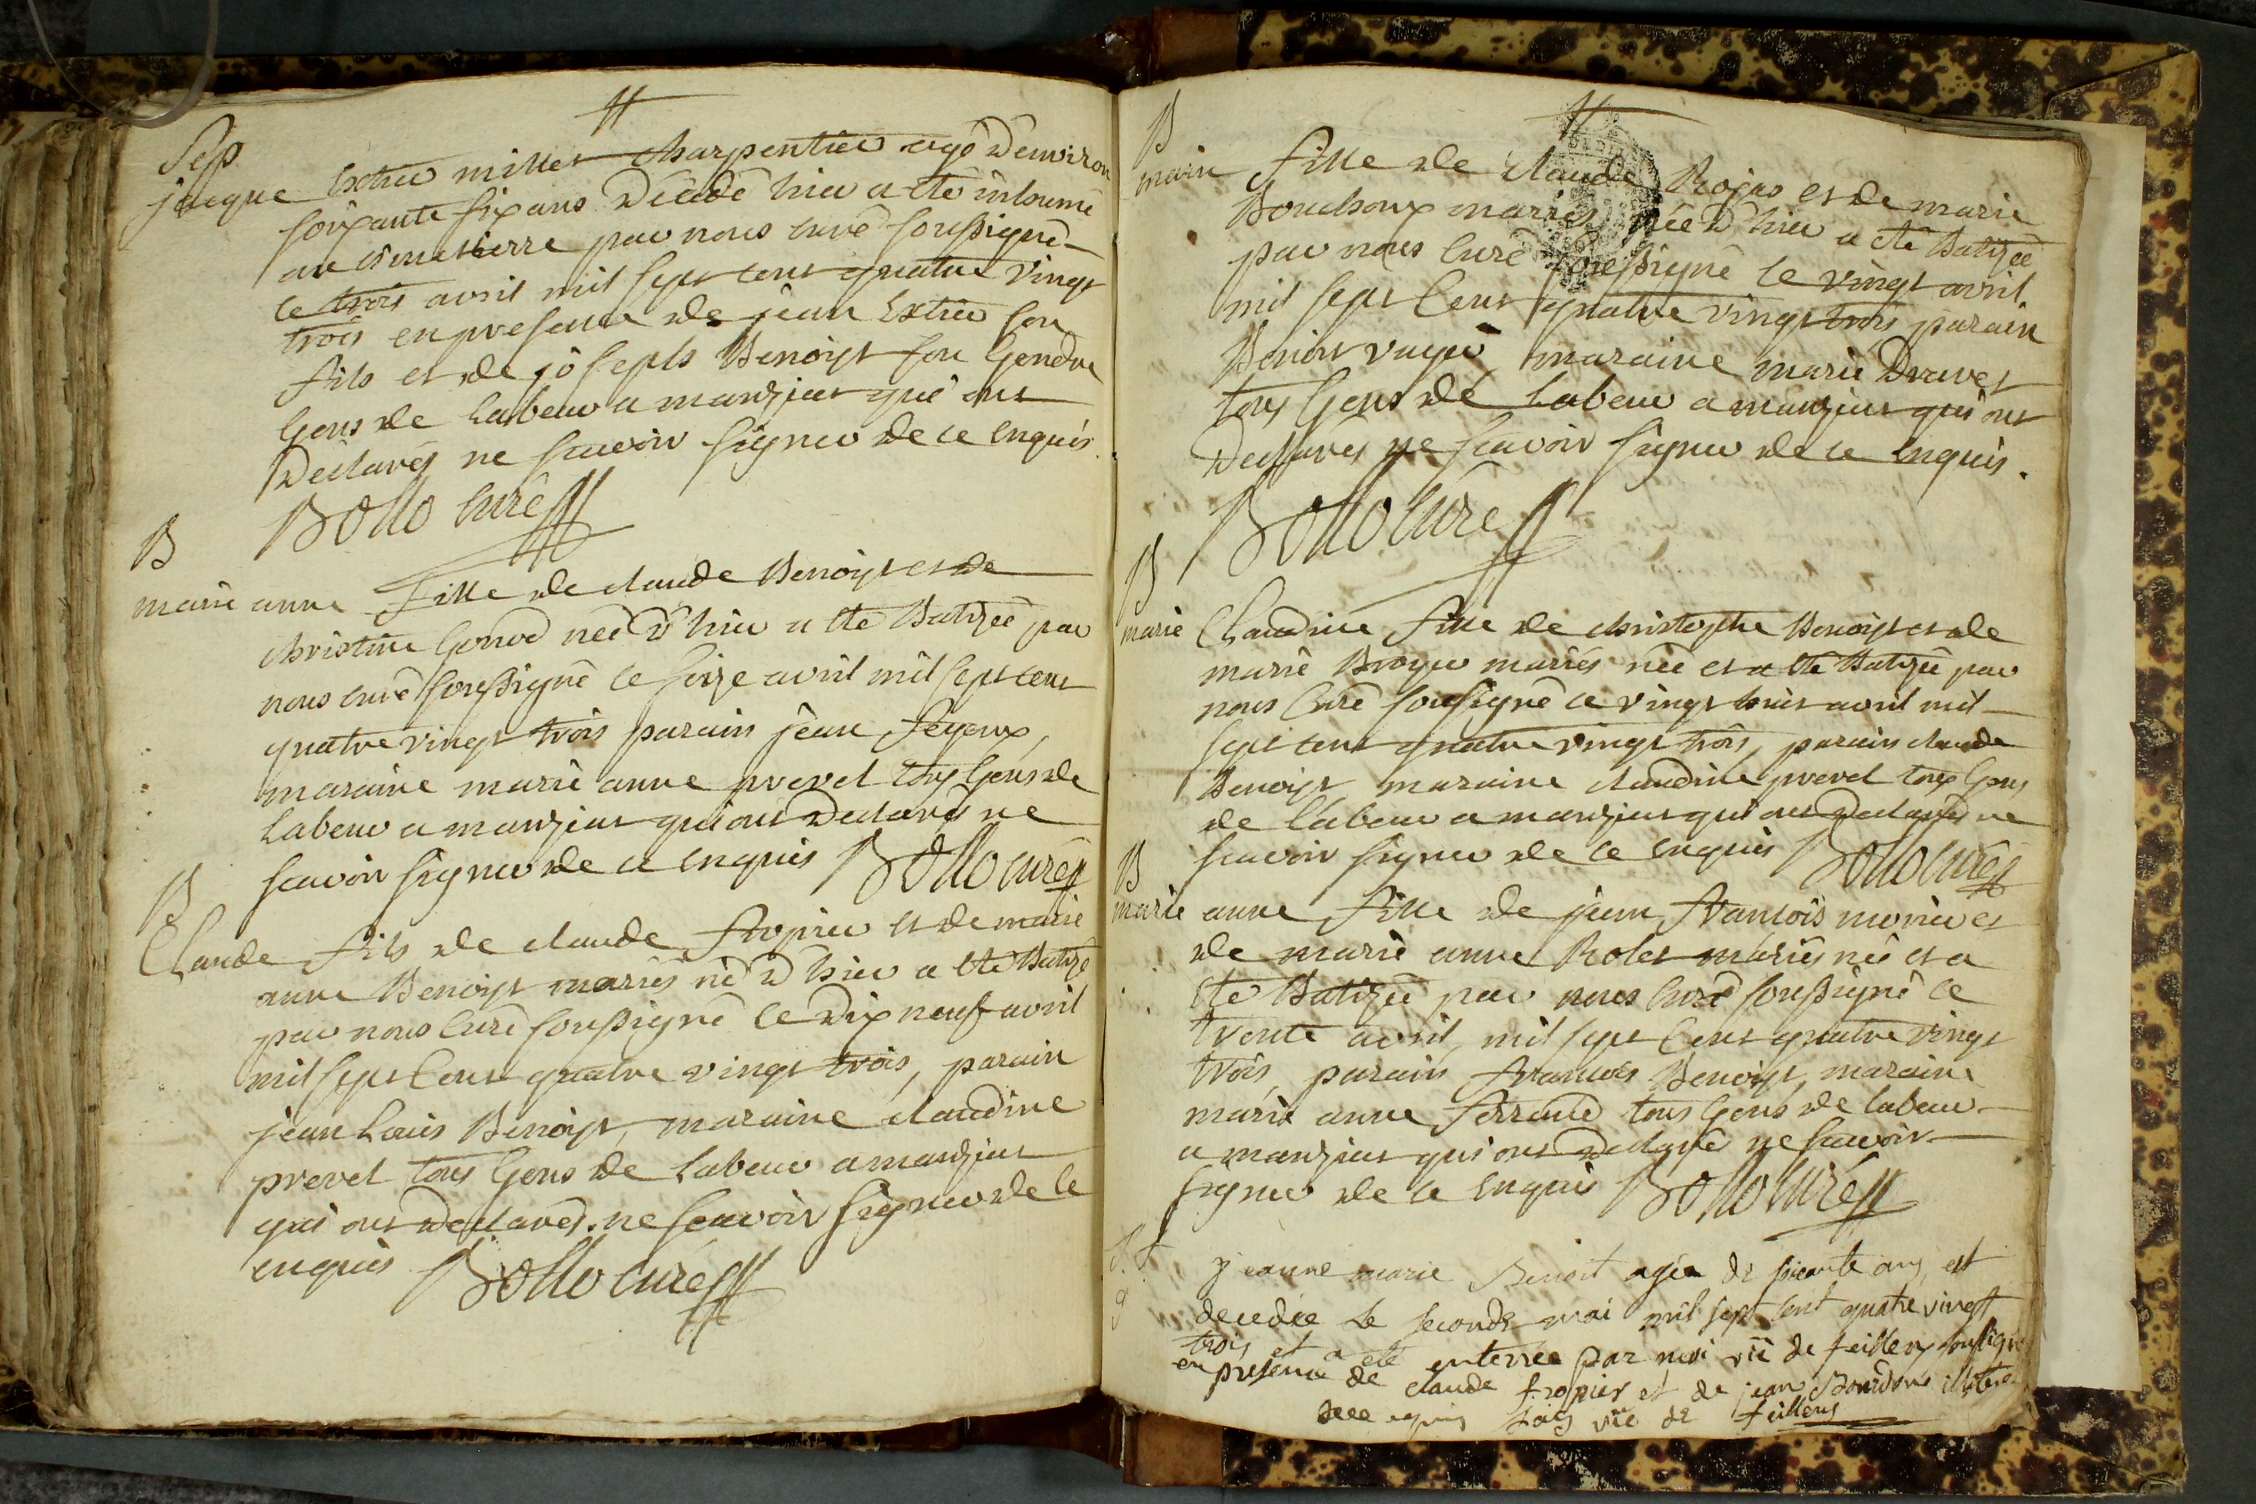 Sep
jacque Extier miller charpentier agé D'environ
soixante six ans Décédé hier a été inhumé
au cimetierre par nous curé soussigné
le trois avril mil sept cent quatre vingt
trois en presence de jean Extier son
fils et de joseph Benoist son Gendre
Gens de Labeur a manziat qui ont
Déclarés ne scavoir signer de ce Enquis.
Bollo curé
B
marie anne fille de claude Benoist et de
christine née d'hier a été Batizée par
nous curé soussigné le seize avril mil sept cent
quatre vingt trois parain jean feyeux,
maraine marie anne prevel tous Gens de
Labeur a manziat qui ont Declarés ne
scavoir signer de ce Enquis Bollo curé
B
Claude fils de claude fropier et de marie
anne Benoist mariés né d'hier a été Batizé
par nous Curé soussigné le Dix neuf avril
mil sept Cent quatre vingt trois, parain
jean Louis Benoist, maraine claudine
prevel tous Gens de Labeur a manziat
qui ont Declarés ne scavoir signer de ce
enquis Bollo curé
B
marie fille de claude Rojas et de marie
Bouchoux mariés née d'hier a été Batizée
par nous Curé soussigné le vingt avril
mil sept Cent quatre vingt trois parain
Benoit maraine marie Dravet
tous Gens de Labeur a manziat qui ont
Declarés ne scavoir signer de ce Enquis.
Bollo Curé
B
marie Claudine fille de christophe Benoist et de
marie Broyer mariés née et a été Batizée par
nous Curé soussigné le vingt huit avril mil
sept cent quatre vingt trois, parain claude
Benoist maraine claudine prevel tous Gens
de Labeur a manziat qui ont Declarés ne
scavoir signer de ce Enquis Bollo curé
B
marie anne fille de jean francois morier et
de marie anne Rolet mariés née et a
été Batizée par nous Curé soussigné le
trente avril, mil sept Cent quatre vingt
trois, parain francois Benoist, maraine
marie anne ferrand tous Gens de Labeur
a manziat qui ont Declaré ne scavoir
signer de ce Enquis Bollo Curé
jeanne marie Benoit agée de soicante ans, est
decedée le seconde mai mil sept cent quatre vingt
trois et a eté enterrée par moi vre de feillens soussigné
en presence de claude fropier et de jean Bourdon illiteré
de ce enquis vre de feillens